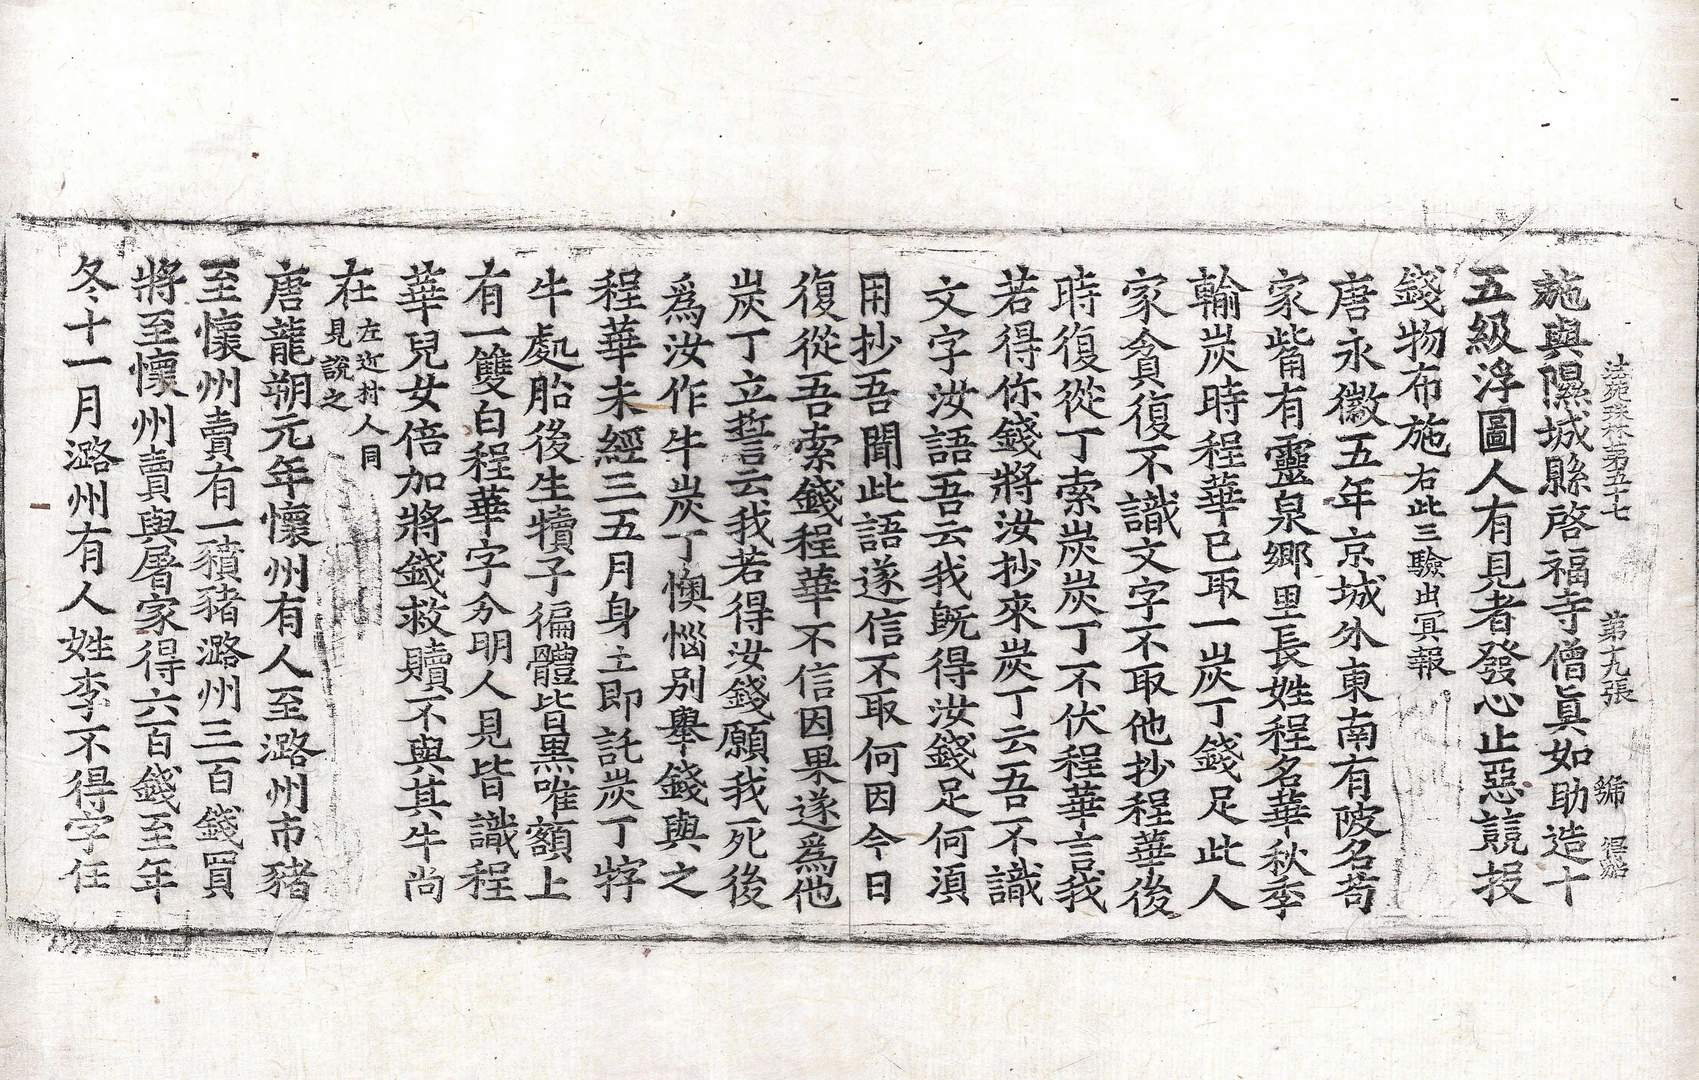 法苑珠林第五十七 第十九張 號
施與隰城縣啓福寺僧眞如助造十
五級浮圖人有見者發心止惡競投
錢物布施右此三驗出冥報
唐永徽五年京城外東南有陂名苟
家觜有靈泉鄉里長姓程名華秋季
輸炭時程華已取一炭丁錢足此人
家貪復不識文字不取他抄程華後
時復從丁索炭炭丁不伏程華言我
若得你錢將汝抄來炭丁云吾不識
文字汝語吾云我旣得汝錢足何湏
用抄吾聞此語遂信不取何因今日
復從吾索錢程華不信因果遂爲他
炭丁立誓云我若得汝錢願我死後
爲汝作牛炭丁懊惱别舉錢與之
程華未經三五月身亡即託炭丁牸
牛處胎後生犢子徧體皆黑唯額上
有一雙白程華字分明人見皆識程
華兒女倍加將錢救贖不與其牛尚
在左近村人同見說之
唐龍朔元年懷州有人至潞州市豬
至懷州賣有一豶豬潞州三百錢買
將至懷州賣與屠家得六百錢至年
冬十一月潞州有人姓李不得字任